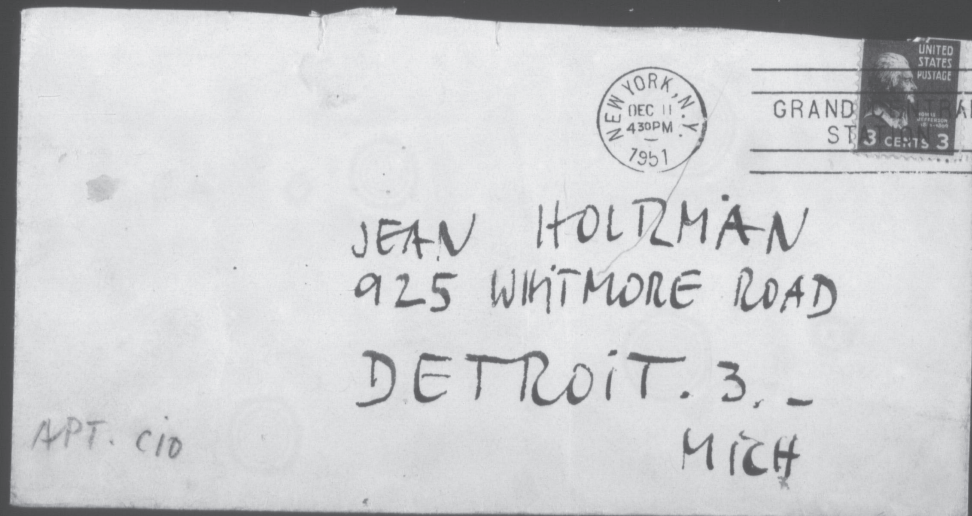 NEW YORK, N.Y.
DEC 11
4 30 PM
1951
GRAND CENTRAL
STATION
UNITED
STATES
POSTAGE
3 CENTS 3
JEAN HOLTZMAN
925 WHITMORE ROAD
DETROIT. 3. _
MICH
APT. C10